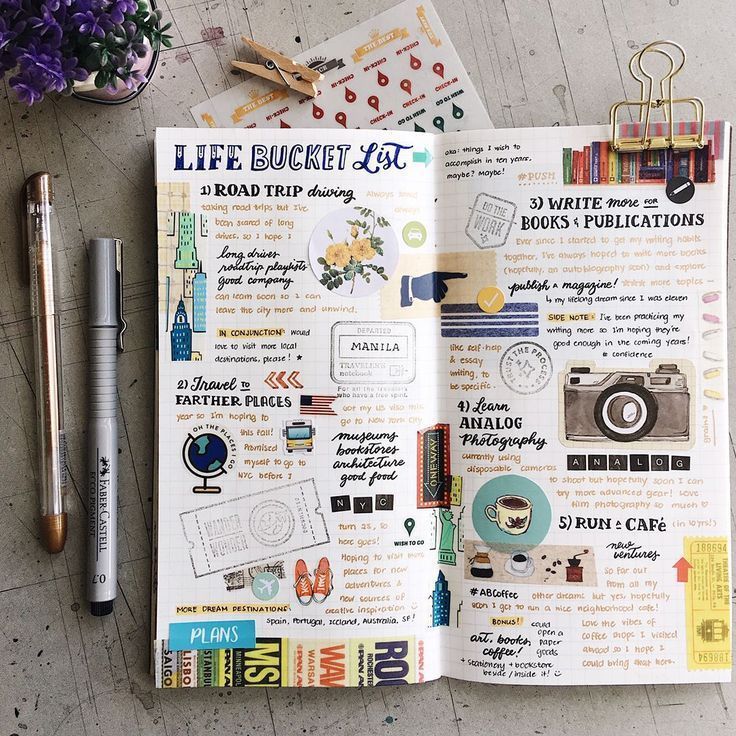 LIFE BUCKET List
1) ROAD TRIP driving Always loved
taking road trips but I've always
been scared of long
drives, so I hope I
long drives
roadtrip playlists
good company
can learn soon so I can
leave the city more and unwind.
IN CONJUNCTION: would
love to visit more local
destinations, please! ★
DEPARTED
MANILA
TRAVELER'S
notebook
For all the travelers
who have a free spirit.
2) Travel to
FARTHER PLACES
Got my US visa this
year so I'm hoping to
go to New York City
this fall!
Promised
myself to go to
NYC before I
OH THE PLACES I GO
museums
bookstores
architecture
good food
NYC
turn 25, so
here goes!
WISH TO GO
Hoping to visit more
places for new
adventures &
new sources of
creative inspiration
WANDER
WONDER
MORE DREAM DESTINATIONS:
Spain, Portugal, Iceland, Australia, SF!
PLANS
SAIGO
LISBO
ISTANBUL
MINNEAPOL
MSP
WARSA
WAW
ROCHESTER
ROC
aka: things I wish to
accomplish in ten years,
maybe? Maybe!
#PUSH
DO THE
WORK
3) WRITE more FOR
BOOKS & PUBLICATIONS
Ever since I started to get my writing habits
together, I've always hoped to write more books
(hopefully, an autobiography soon) and explore
publish a magazine! more topics –
↳ my lifelong dream since I was eleven
like self-help
& essay
writing, to
be specific.
TRUST THE PROCESS
SIDE NOTE: I've been practicing my
writing more so I'm hoping they're
good enough in the coming years!
# confidence
4) Learn
ANALOG
Photography
currently using
disposable cameras
ANALOG
to shoot but hopefully soon I can
try more advanced gear! Love
film photography so much
ONE WAY
5) RUN a CAFé (in 10 yrs!)
new
ventures
so far out
from all my
#ABCoffee other dreams but yes, hopefully
soon I get to run a nice neighborhood cafe!
BONUS! could
open a
paper
goods
art, books,
coffee!
+ stationery + bookstore
beside/inside it!
Love the vibes of
coffee shops I visited
abroad so I hope I
could bring that here.
188694
THEATRE OF THE
LIVING ARTS
188694
FABER-CASTELL
ECCO PIGMENT
0.7
THE BEST
CHECK-IN
WISH TO GO